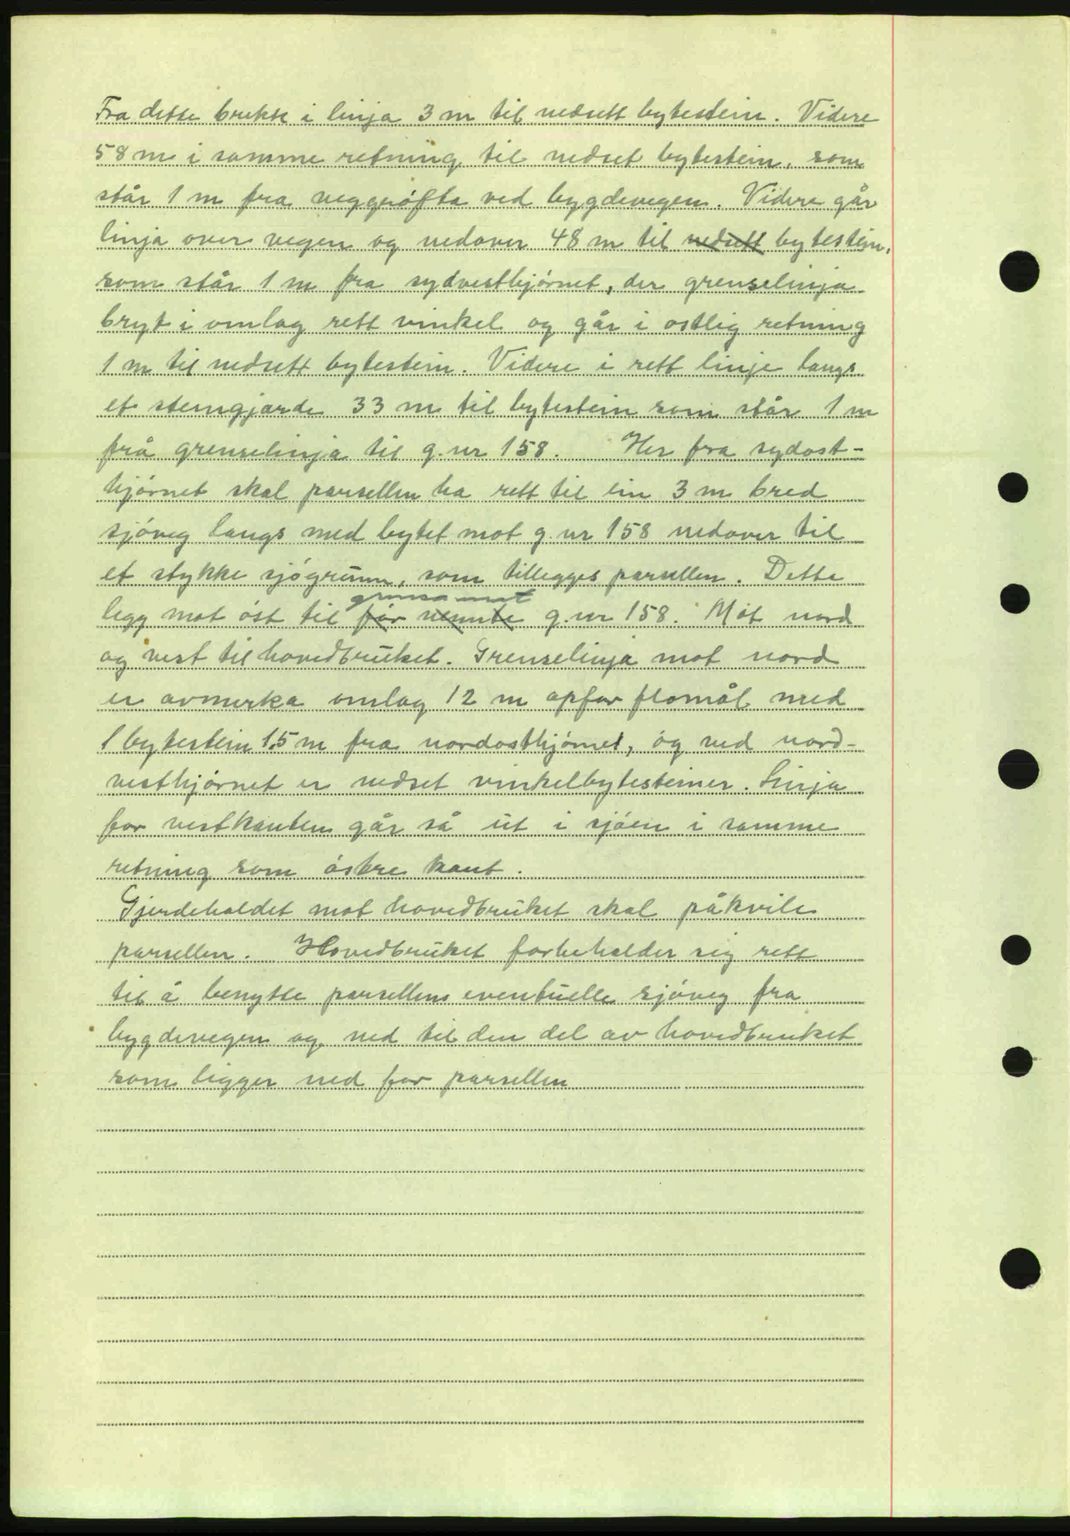 Fra dette brekk i linja 3 m til nedsett bytestein. Videre
58 m i samme retning til nedset bytestein, som
står 1 m fra veggrøfta ved bygdevegen. Videre går
linja over vegen og nedover 48 m til nedsett bytestein,
som står 1 m fra sydvesthjørnet, der grenselinja
bryt i omlag rett vinkel og går i ostlig retning
1 m til nedsett bytestein. Videre i rett linje langs
et steingjærde 33 m til bytestein som står 1 m
frå grenselinja til g.nr 158. Her fra sydost-
hjørnet skal parsellen ha rett til ein 3 m bred
sjøveg langs med bytet mot g.nr 158 nedover til
et stykke sjøgrunn, som tillegges parsellen. Dette
grensa mot
legg mot øst til før nemnte g.nr 158. Mot nord
og vest til hovedbruket. Grenselinja mot nord
er avmerka omlag 12 m opfor flomål med
1 bytestein 1.5 m fra nordosthjørnet, og ved nord-
vesthjørnet er nedset vinkelbytesteiner. Linja
for vestkanten går så ut i sjøen i samme
retning som østre kant.
Gjerdeholdet mot hovedbruket skal påkvile
parsellen. Hovedbruket forbeholder sig rett
til å benytte parsellens eventuelle sjøveg fra
bygdevegen og ned til den del av hovedbruket
som ligger ned for parsellen